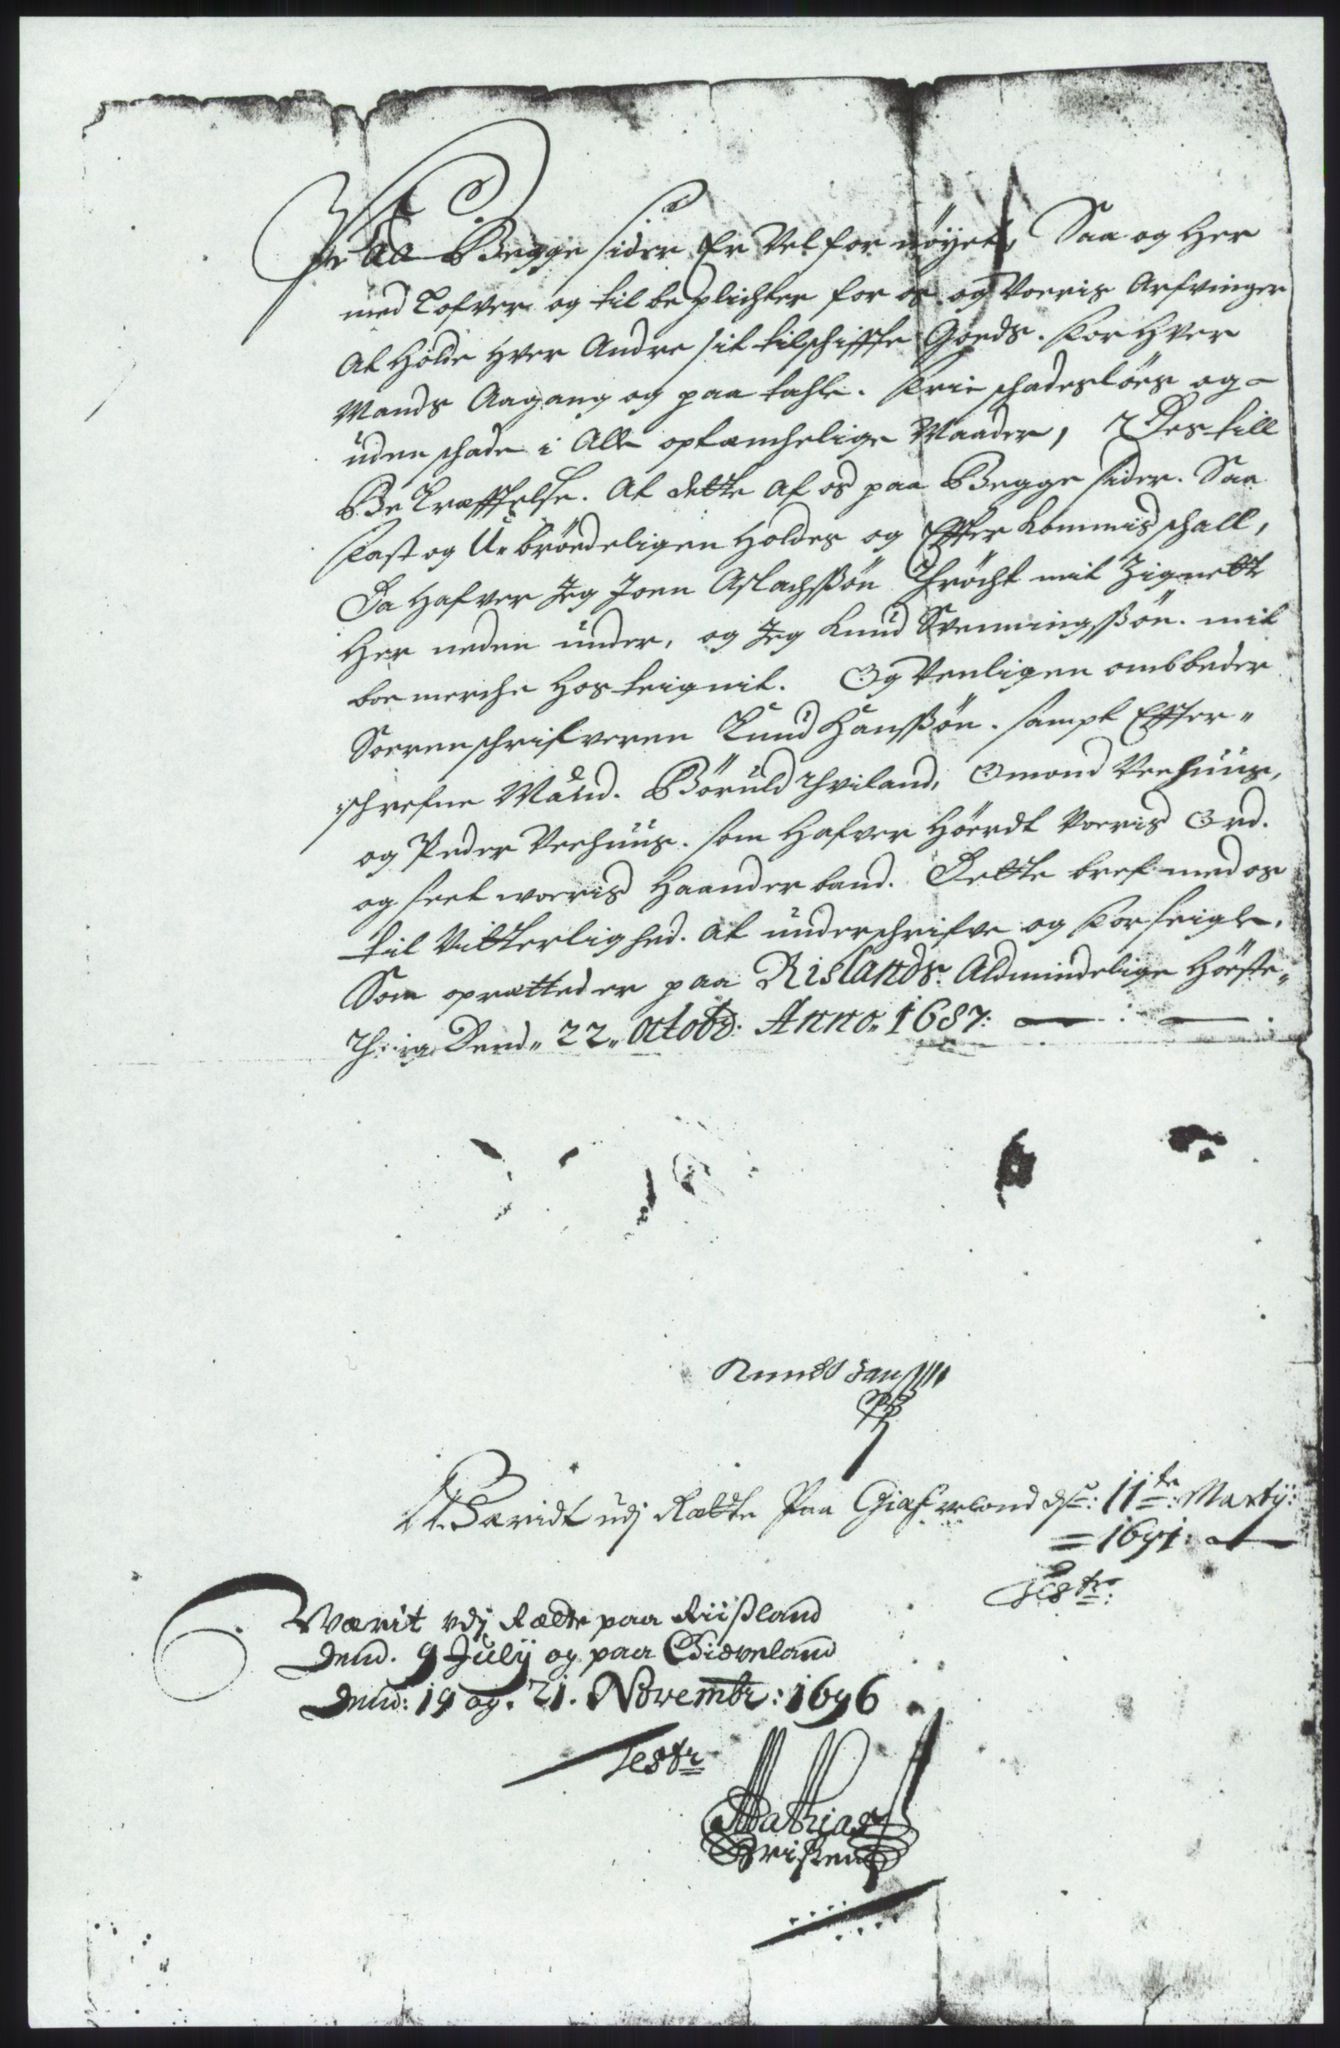 Paa Begge sider Er Vel for nöyet, Saa og Her
med Lofver og til be plichter for os og Voeris Arfvinger
At Holde Hver Andre sit tilschiffte Goeds. For Hver
Mands Aagang og paa tahle. Frie schadeslöes og
uden schade i Alle optænchelige Maader, Des till
Be Kræfftelse. At dette Af os paa Begge sider. Saa
Fast og U-bröedeligen Holdes og Effter kommis schall,
Da Hafver Jeg Joen Aslachssön Thröcht mit Zignette
Her neden under, og Jeg Knud Svenningssön. mit
boe merche Hos teignit. Og Venligen ombbeder
Sorenschrifveren Knud Hanssön. sampt Effter-
schrefne Mænd. Böruld Hviland, Omond Veehuus,
og Peder Veehuus. som Hafver Höerdt Voeris Ord.
og seet woeris Haander band. Dette bref med os
til Vitterlighed. at underschrifve og Forseigle.
Som oprætted er paa Rislands Aldmindelige Höste-
Thing Dend 22 Octobr: Anno 1687:
Knud Hanss
Væridt udj Rætte Paa Giæfveland d: 11te Martij:
1691:
Test:
Værit vdj Rætte paa Riisland
Dend. 9 July og paa Giæveland
Dend: 19 og. 21. Novembr: 1696
Testr
Mathias
Christens